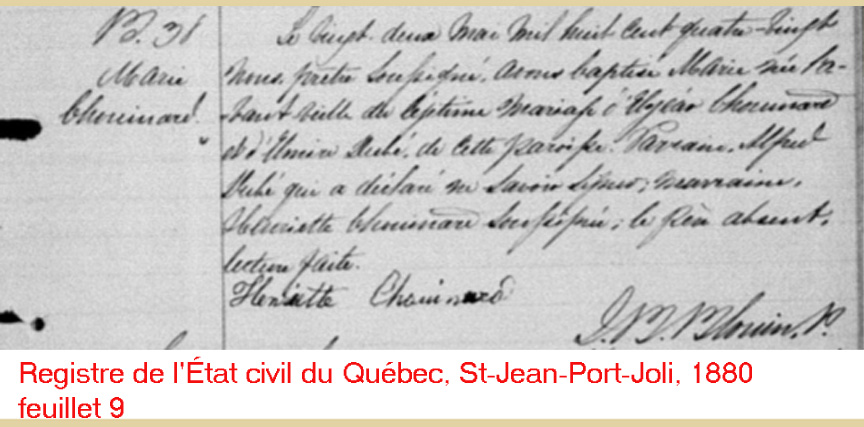 B. 38
Marie
Chouinard.
Le vingt deux Mai mil huit cent quatre-vingt
nous prêtre soussigné, avons baptisé Marie née l'a-
vant veille du légitime mariage d'Elzéar Chouinard
et d'Elmire Dubé, de cette paroisse. Parrain, Alfred
Dubé qui a déclaré ne savoir signer; marraine,
Henriette Chouinard soussignée; le père absent.
lecture faite.
Henriette Chouinard
J. B. Blouin, P.
Registre de l'État civil du Québec, St-Jean-Port-Joli, 1880
feuillet 9